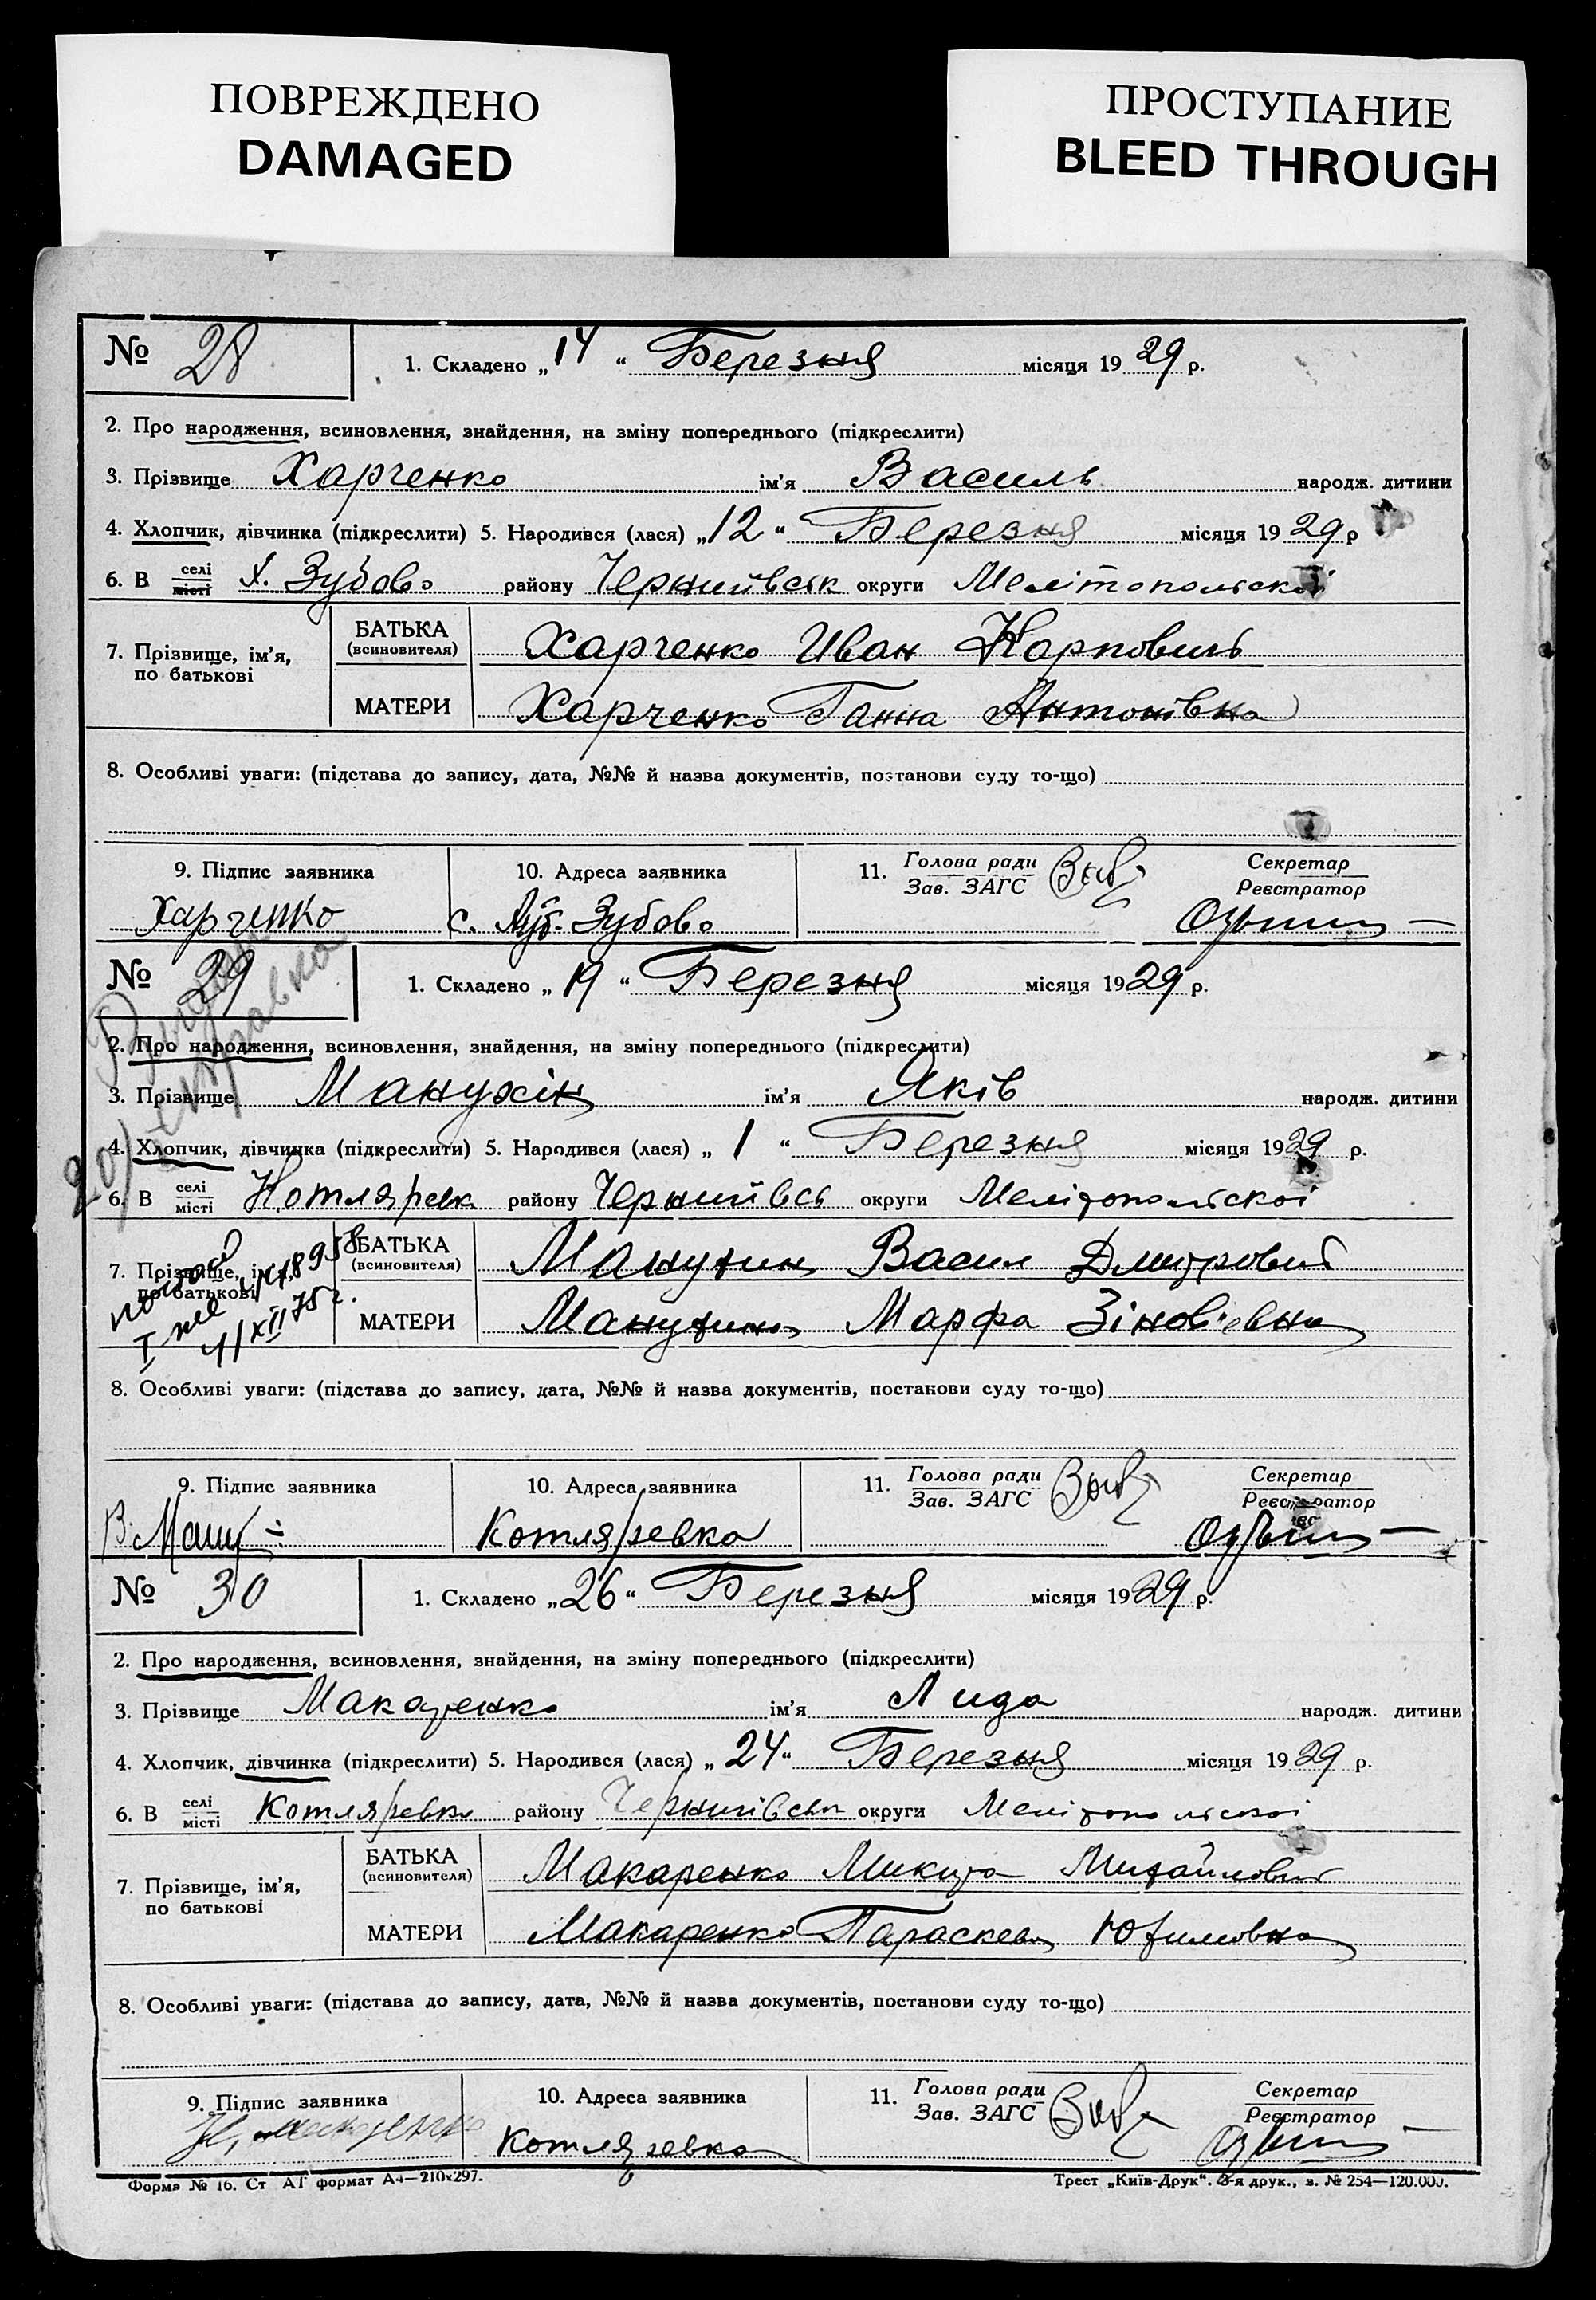 ПОВРЕЖДЕНО
DAMAGED
ПРОСТУПАНИЕ
BLEED THROUGH
№ 28
1. Складено „ 14 “ Березня місяця 19 29 р.
2. Про народження, всиновлення, знайдення, на зміну попереднього (підкреслити)
3. Прізвище Харченко ім'я Василь народж. дитини
4. Хлопчик, дівчинка (підкреслити) 5. Народився (лася) „ 12 “ Березня місяця 19 29 р
6. В селі місті х. Зубово району Чернигівськ округи Мелітопольскоі
7. Прізвище, ім'я, по батькові
БАТЬКА (всиновителя) Харченко Иван Карпович
МАТЕРИ Харченко Ганна Антонівна
8. Особливі уваги: (підстава до запису, дата, №№ й назва документів, постанови суду то-що)
9. Підпис заявника
10. Адреса заявника
11. Голова ради Зав. ЗАГС
Секретар Реєстратор
Харченко
с. Зубово
№ 29
1. Складено „ 19 “ Березня місяця 19 29 р.
2. Про народження, всиновлення, знайдення, на зміну попереднього (підкреслити)
3. Прізвище Манухін ім'я Яків народж. дитини
4. Хлопчик, дівчинка (підкреслити) 5. Народився (лася) „ 1 “ Березня місяця 19 29 р.
6. В селі місті Котляревк району Чернигівсь округи Мелітопольскоі
7. Прізвище, ім'я, по батькові
БАТЬКА (всиновителя) Манухин Васил Дмитрович
МАТЕРИ Манухина Марфа Зінов'євна
8. Особливі уваги: (підстава до запису, дата, №№ й назва документів, постанови суду то-що)
9. Підпис заявника
10. Адреса заявника
11. Голова ради Зав. ЗАГС
Секретар Реєстратор
Котляревка
№ 30
1. Складено „ 26 “ Березня місяця 19 29 р.
2. Про народження, всиновлення, знайдення, на зміну попереднього (підкреслити)
3. Прізвище Макаренко ім'я Лида народж. дитини
4. Хлопчик, дівчинка (підкреслити) 5. Народився (лася) „ 24 “ Березня місяця 19 29 р.
6. В селі місті Котляревка району Чернигівськ округи Мелітопольскоі
7. Прізвище, ім'я, по батькові
БАТЬКА (всиновителя) Макаренко Микита Михайлович
МАТЕРИ Макаренко Параскева Юхимовна
8. Особливі уваги: (підстава до запису, дата, №№ й назва документів, постанови суду то-що)
9. Підпис заявника
10. Адреса заявника
11. Голова ради Зав. ЗАГС
Секретар Реєстратор
Котляревка
Форма № 16. Ст АГ формат А4—210×297.
Трест „Київ-Друк“. 3-я друк., з. № 254—120.000.